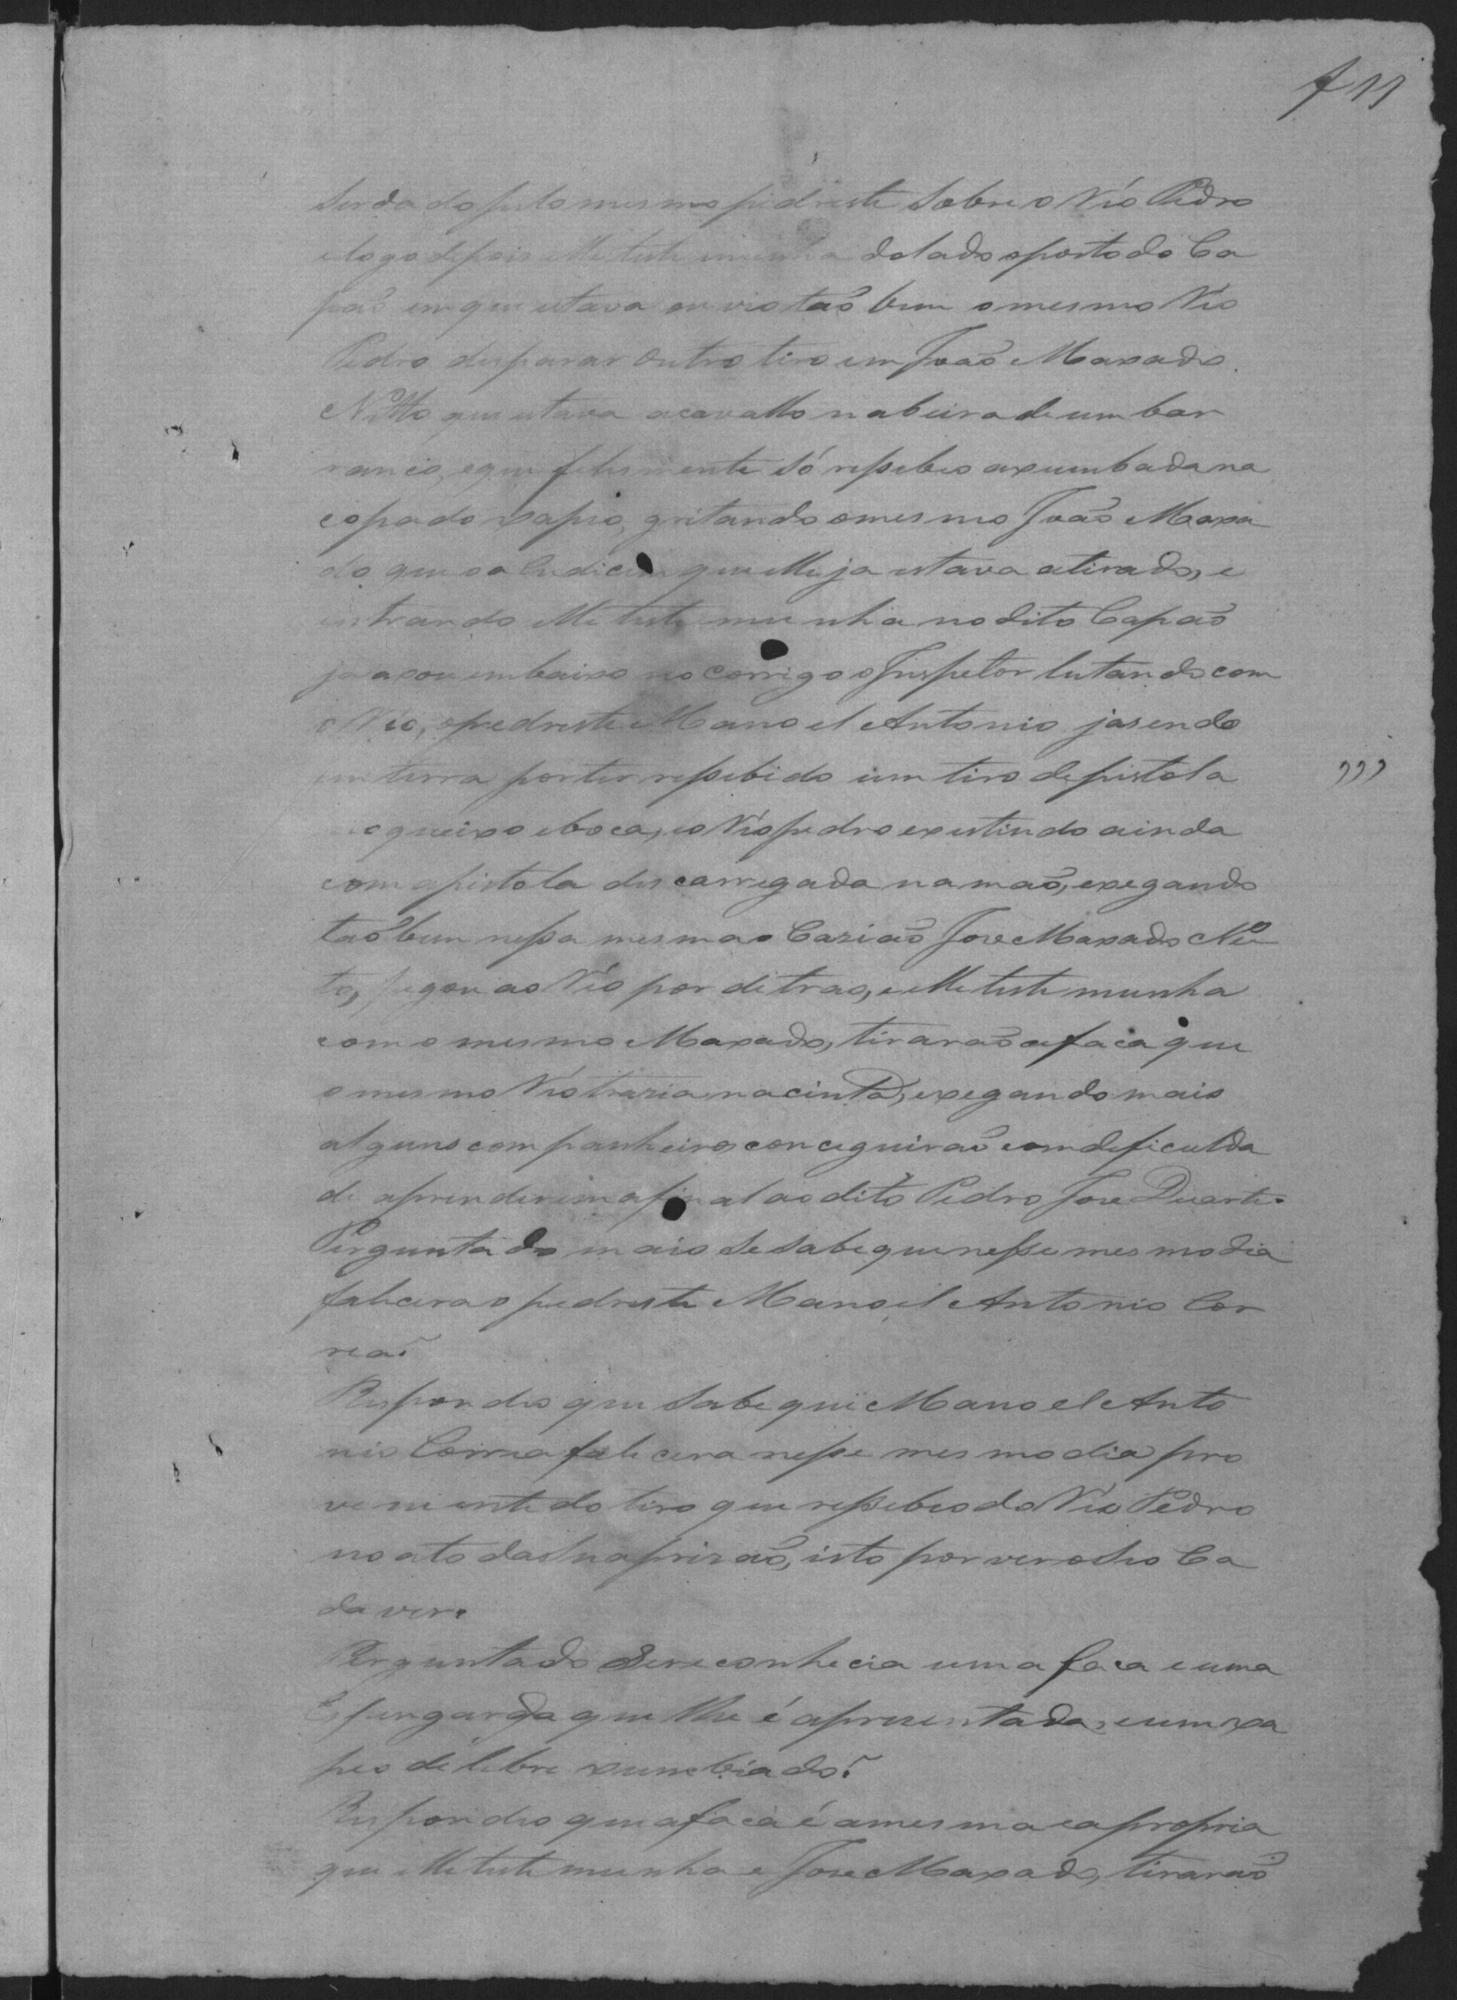 f 11
ser dado pelo mesmo pedreste sobre o Réo Pedro
e logo depois elle testemunha do lado oposto do Ca
pão em que estava ouvio tão bem o mesmo Réo
Pedro desparar outro tiro em João Maxado
Netto que estava a cavallo na beira de um bar
ranco, e que felismente só ressebeo a xumbada na
copa do xapeo, gritando o mesmo João Maxa
do que que elle ja estava atirado, e
entrando elle testemunha no dito Capão
ja axou embaixo no corrigo o Inspetor lutando com
o Réo, o pedreste Manoel Antonio jasendo
em terra por ter ressebido um tiro de pistola
queixo e boca, e o Réo pedro existindo ainda
com a pistola descarregada na mão, e xegando
tão bem nessa mesma o Caziaõ Jose Maxado Ne
to, pegou ao Réo por detras, e elle testemunha
com o mesmo Maxado, tirarão a faca que
o mesmo Réo trazia na cinta, e xegando mais
alguns companheiros conceguirão com deficulda
de aprenderem afinal ao dito Pedro Jose Duarte.
Perguntado mais se sabe que nesse mesmo dia
falecera o pedreste Manoel Antonio Cor
rea?
Respondeo que sabe que Manoel Anto
nio Correa falecera nesse mesmo dia pro
veniente do tiro que ressebeo do Réo Pedro
no ato da sua prizão, isto por ver o seo Ca
daver.
Perguntado se reconhecia uma faca e uma
Espingarda que lhe é aprezentada, e um xa
peo de lebre xumbiado?
Respondeo que a faca é a mesma e a propria
que elle testemunha e Jose Maxado, tirarão